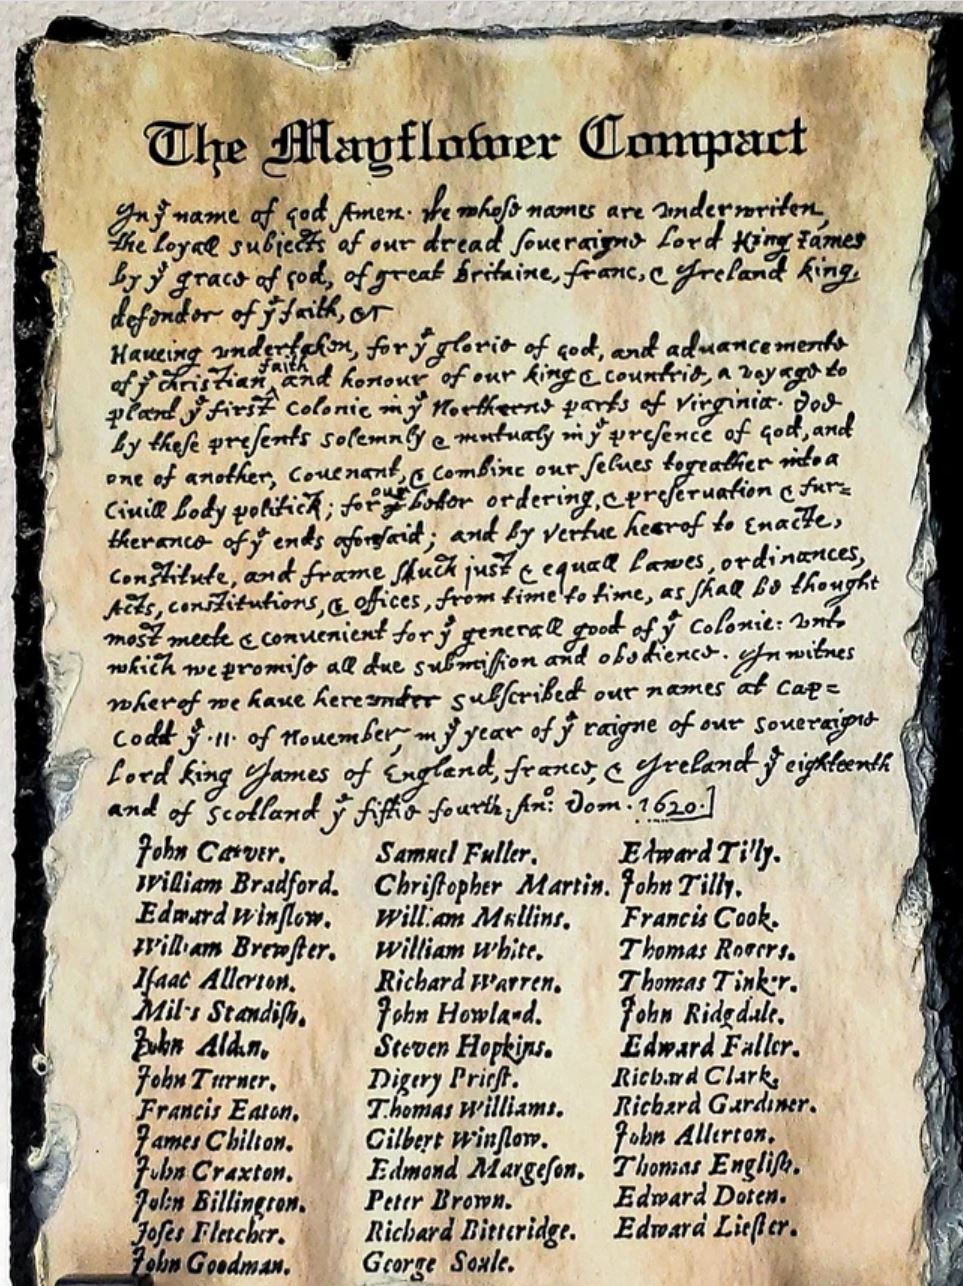 The Mayflower Compact
In yͤ name of god Amen· We whose names are vnderwriten,
the loyall subjects of our dread soueraigne Lord King James
by yͤ grace of god, of great britaine, franc, & Ireland king,
defender of yͤ faith, &c
Haueing vndertaken, for yͤ glorie of god, and aduancemente
of yͤ christian faith and honour of our king & countrie, a voyage to
plant yͤ first colonie in yͤ Northerne parts of Virginia· doe
by these presents solemnly & mutualy in yͤ presence of god, and
one of another, couenant, & combine our selues togeather into a
Ciuill body politick; for our better ordering, & preseruation & fur=
therance of yͤ ends aforesaid; and by vertue hearof to Enacte,
constitute, and frame shuch just & equall lawes, ordinances,
Acts, constitutions, & offices, from time to time, as shall be thought
most meete & conuenient for yͤ generall good of yͤ Colonie: vnto
which we promise all due submission and obedience. In witnes
wherof we have herevnder subscribed our names at Cap=
Codd yͤ ·11· of Nouember, in yͤ year of yͤ raigne of our soueraigne
Lord king James of England, france, & Ireland yͤ eighteenth
and of Scotland yͤ fiftie fourth. Anͦ: Dom. 1620·]
John Carver. Samuel Fuller. Edward Tilly.
William Bradford. Christopher Martin. John Tilly.
Edward Winslow. William Mullins. Francis Cook.
William Brewster. William White. Thomas Rogers.
Isaac Allerton. Richard Warren. Thomas Tinker.
Miles Standish. John Howland. John Ridgdale.
John Alden. Steven Hopkins. Edward Fuller.
John Turner. Digery Priest. Richard Clark.
Francis Eaton. Thomas Williams. Richard Gardiner.
James Chilton. Gilbert Winslow. John Allerton.
John Craxton. Edmond Margeson. Thomas English.
John Billington. Peter Brown. Edward Doten.
Joses Fletcher. Richard Bitteridge. Edward Liester.
John Goodman. George Soule.